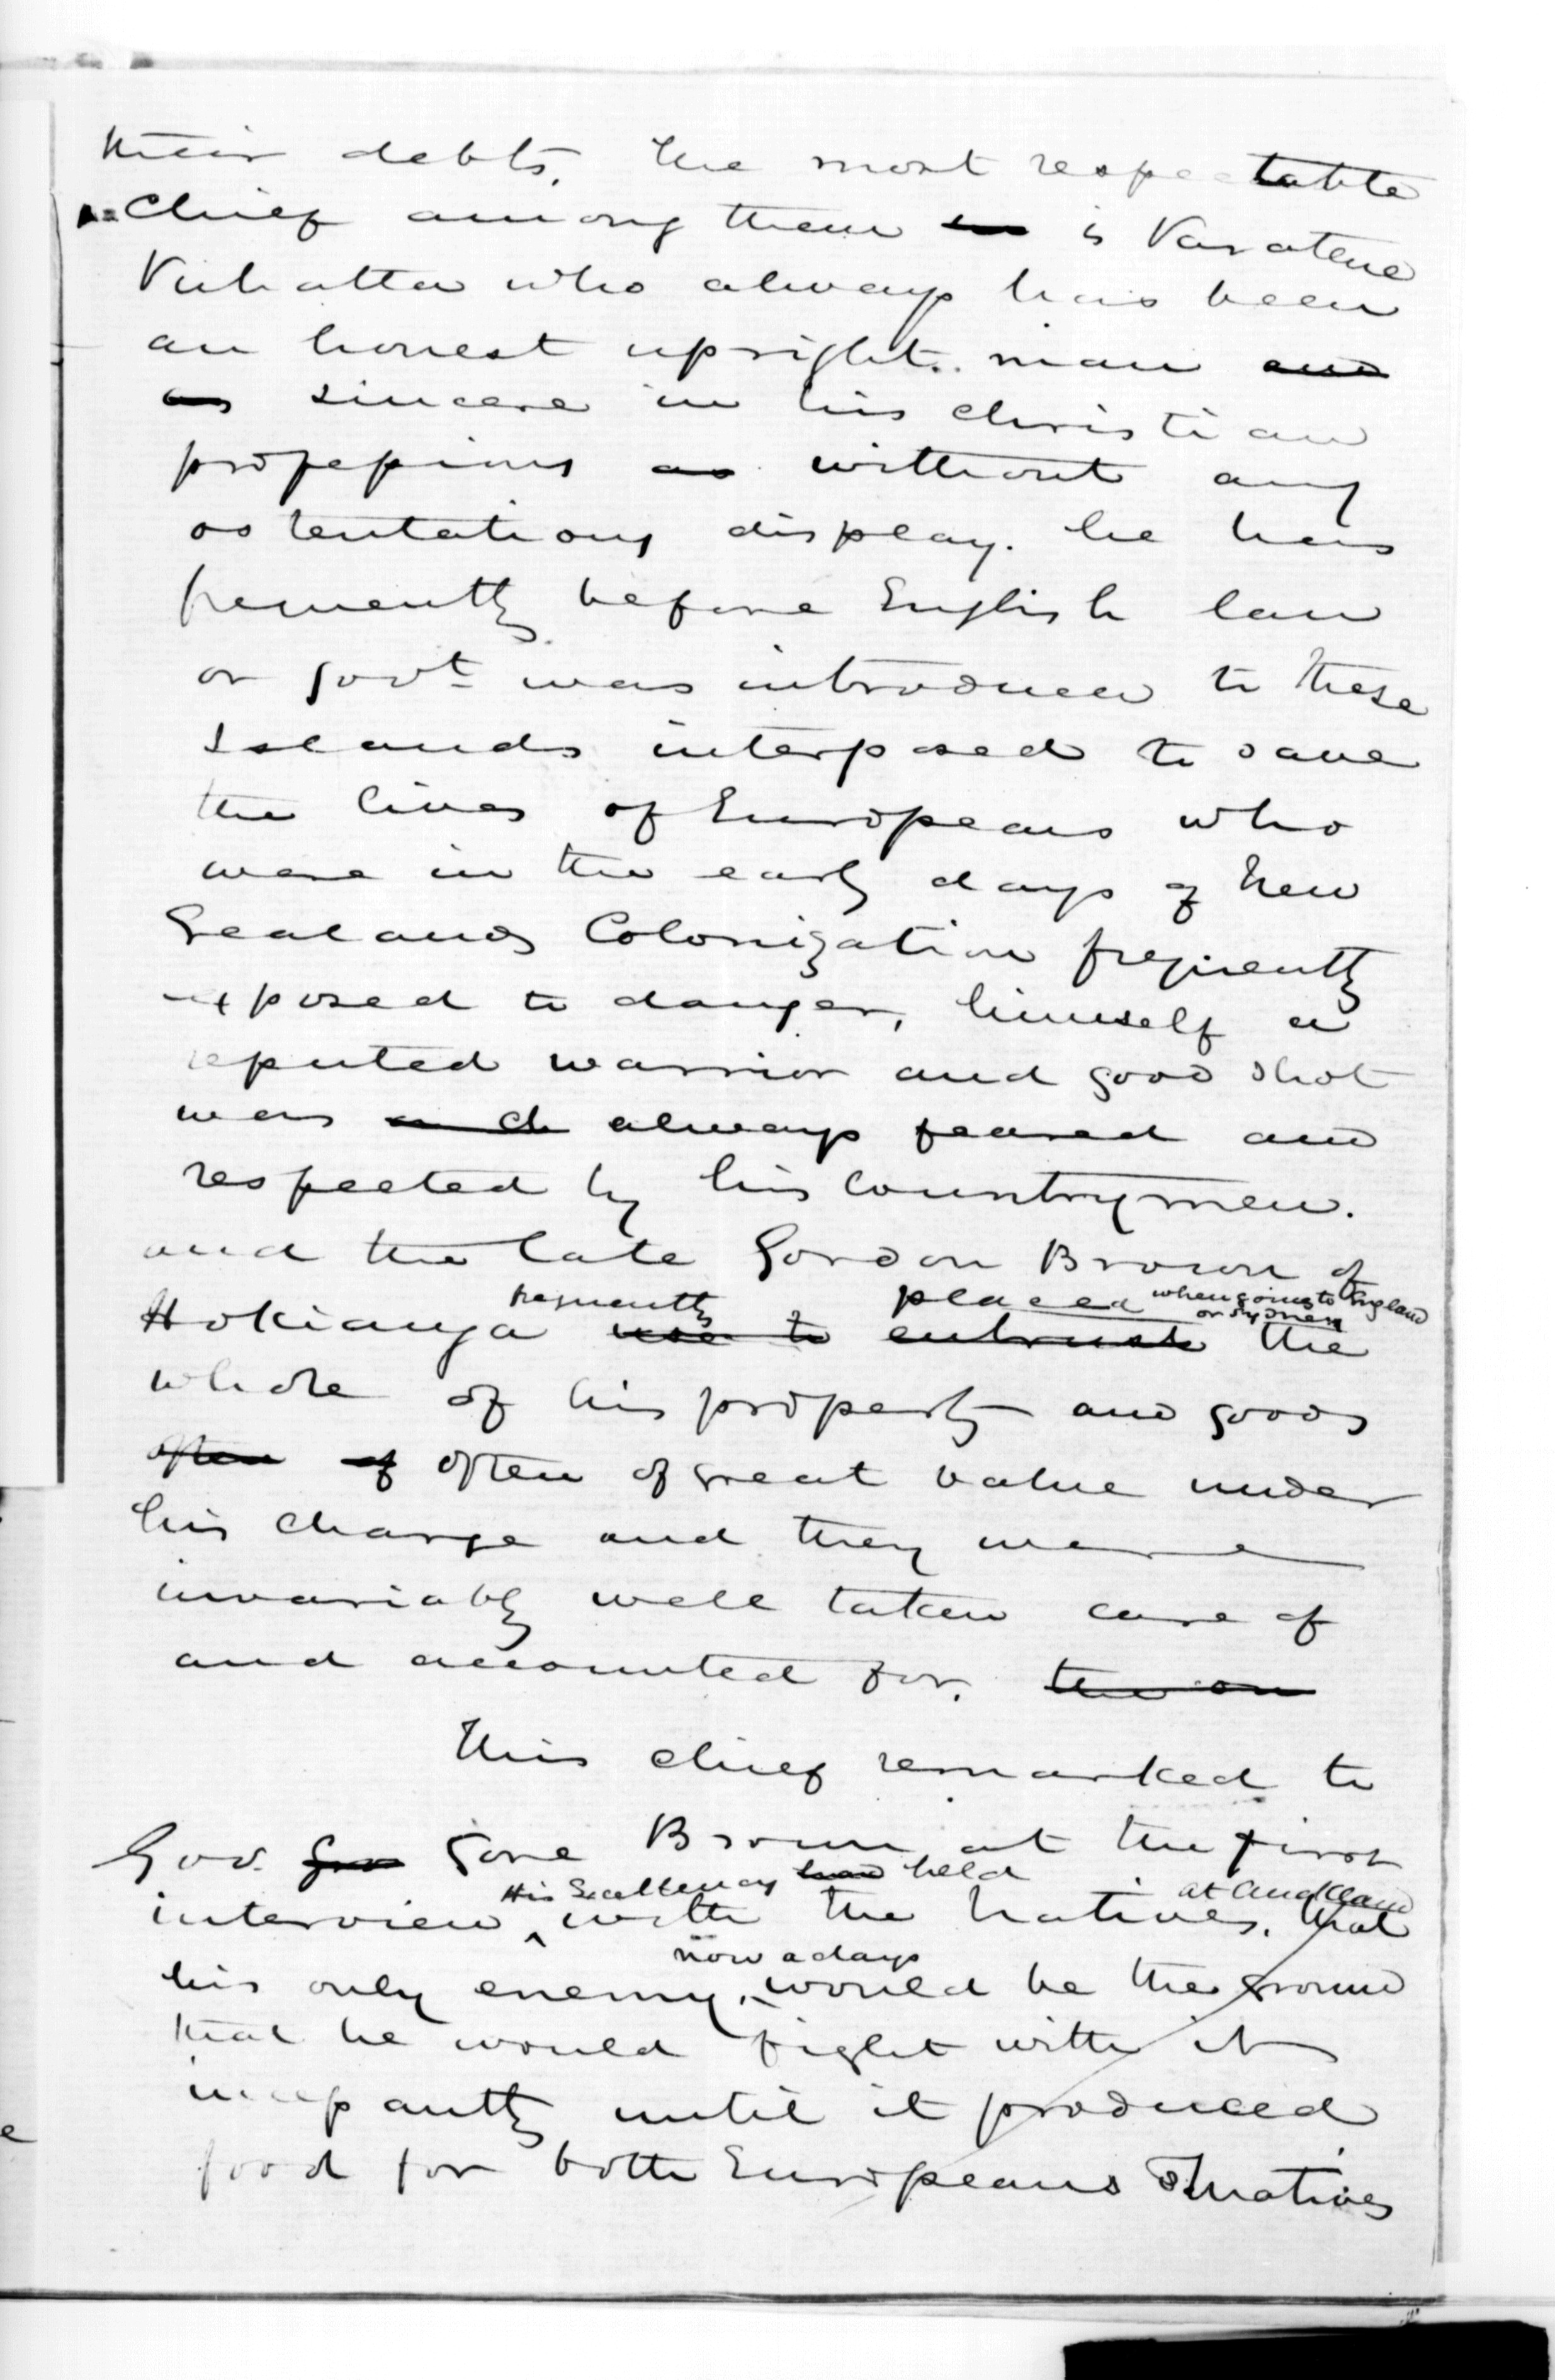 their debts. The most respectable
chief among them is Varatene
Vukatta who always has been
an honest upright man and
as sincere in his christian
professions as without any
ostentatious display. he has
frequently before English law
or Govt was introduced to these
Islands interposed to save
the lives of Europeans who
were in the early days of New
Zealands Colonization frequently
exposed to danger, himself a
reputed warrior and good shot
was always feared and
respected by his countrymen.
and the late Gordon Brown of
frequently placed when going to England
or Sydney
Hokianga use to entrust the
whole of his property and goods
often of often of great value under
his charge and they were
invariably well taken care of
and accounted for. the on
This chief remarked to
Gov. Gor Gore Brown at the first
His Excellency had held at Auckland
interview with the Natives. that
now a days
his only enemy, would be the ground
that he would fight with it
incessantly until it produced
food for both Europeans & Natives